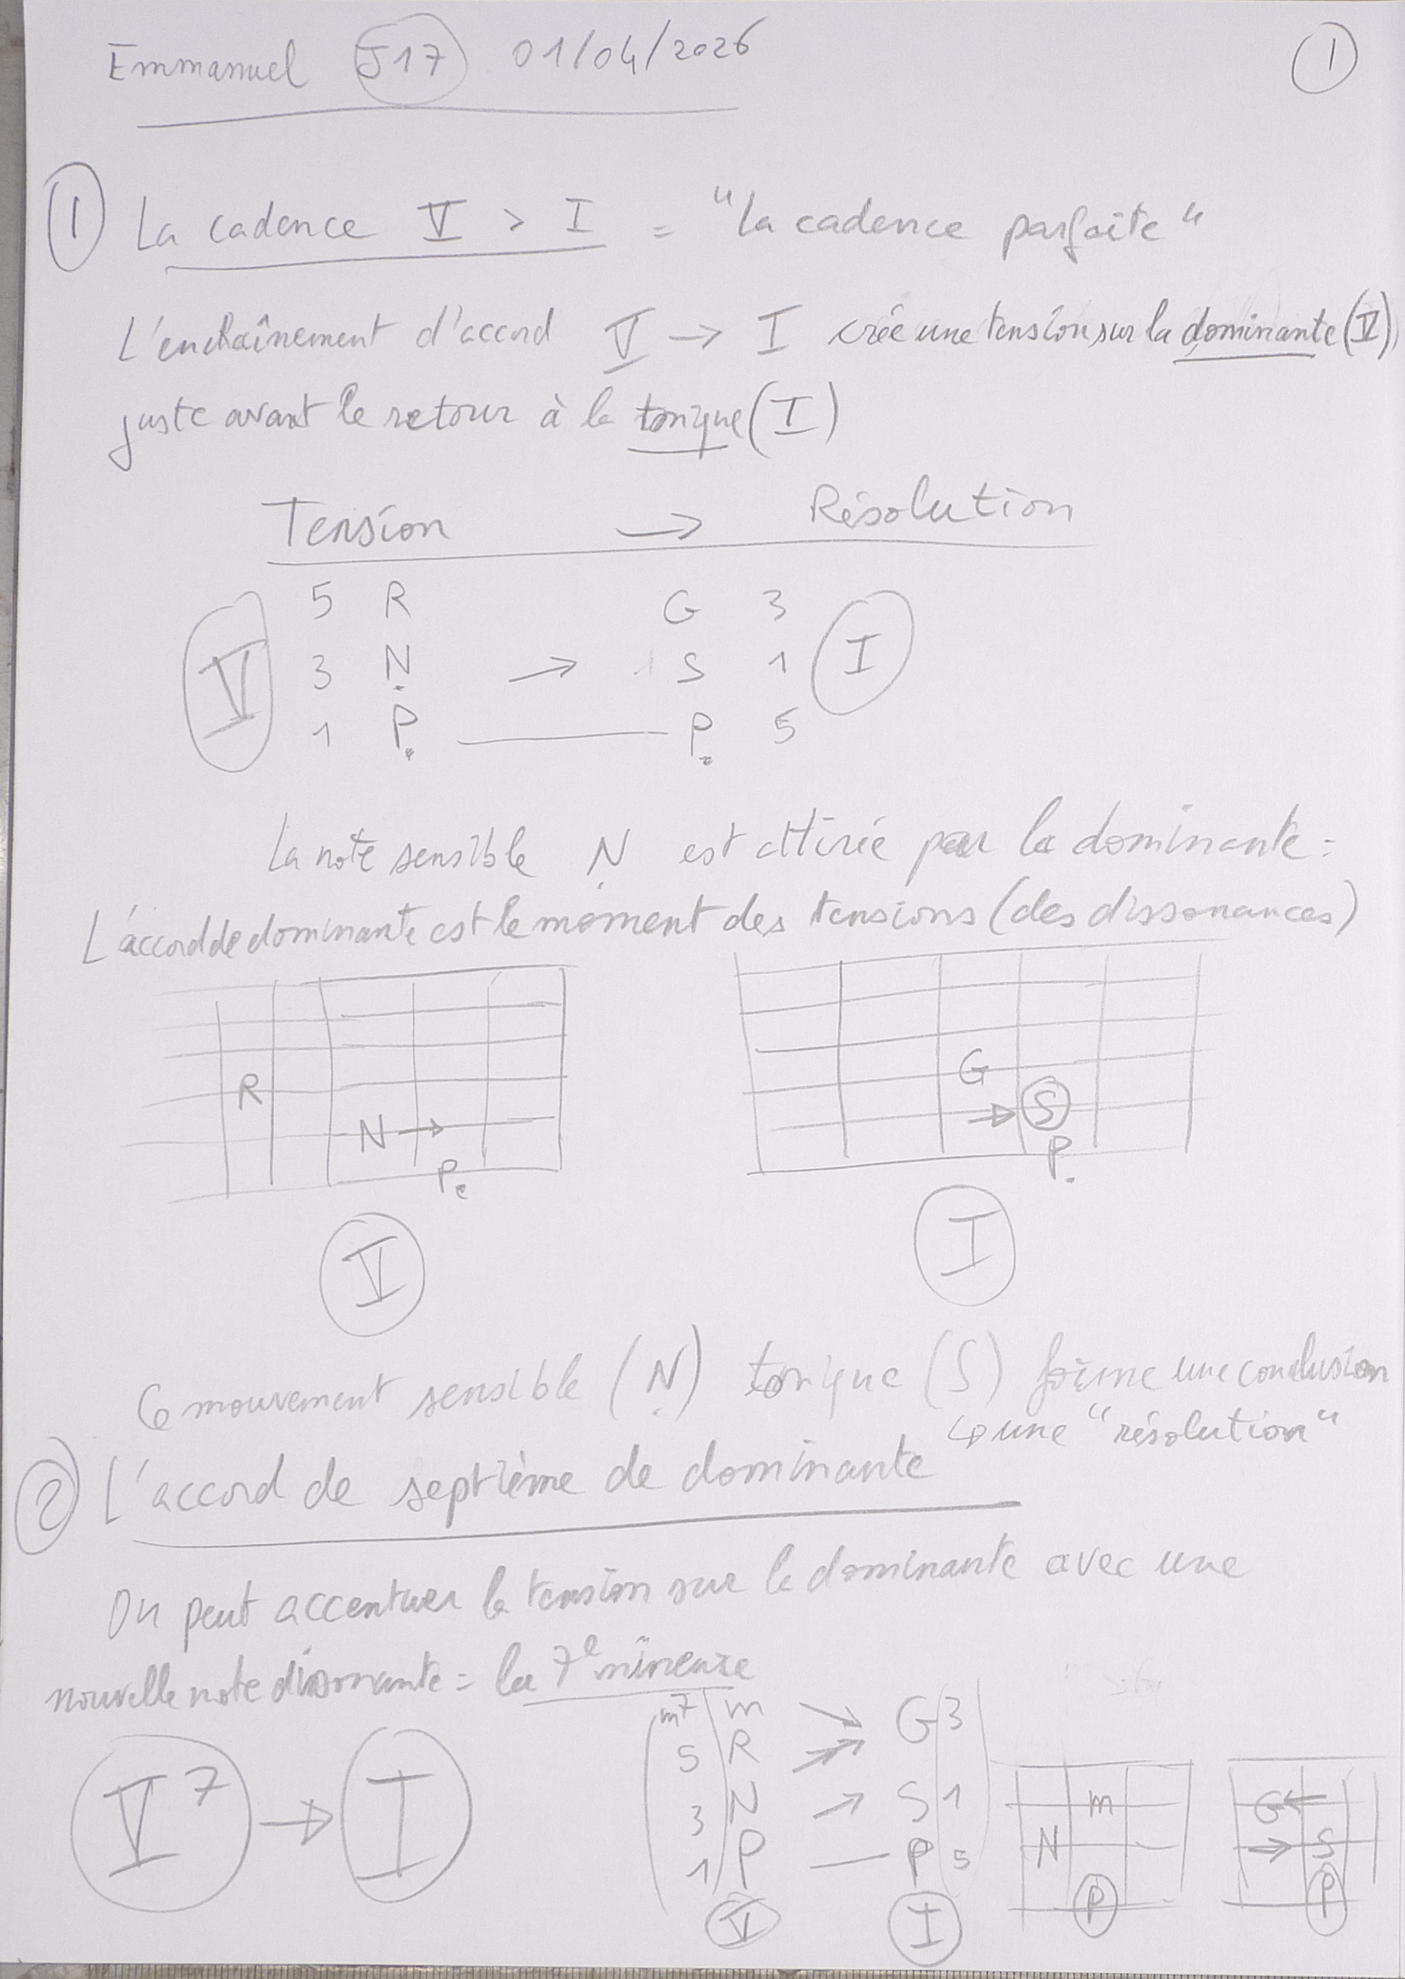 Emmanuel J17 01/04/2026 1
1 La cadence V > I = "la cadence parfaite"
L'enchaînement d'accord V → I crée une tension sur la dominante (V),
juste avant le retour à la tonique (I)
Tension → Résolution
5 R G 3
V 3 Ṇ → S 1 I
1 P. — P. 5
La note sensible Ṇ est attirée par la dominante :
L'accord de dominante est le moment des tensions (des dissonances)
R N → P.
G → S P.
V I
Ce mouvement sensible (Ṇ) tonique (S) forme une conclusion
↳ une "résolution"
2 L'accord de septième de dominante
On peut accentuer la tension sur la dominante avec une
nouvelle note dissonante = la 7e mineure
V7 → I
m7 m → G 3
5 R →
3 N → S 1
1 P — P 5
V I
m N P
G ← → S P